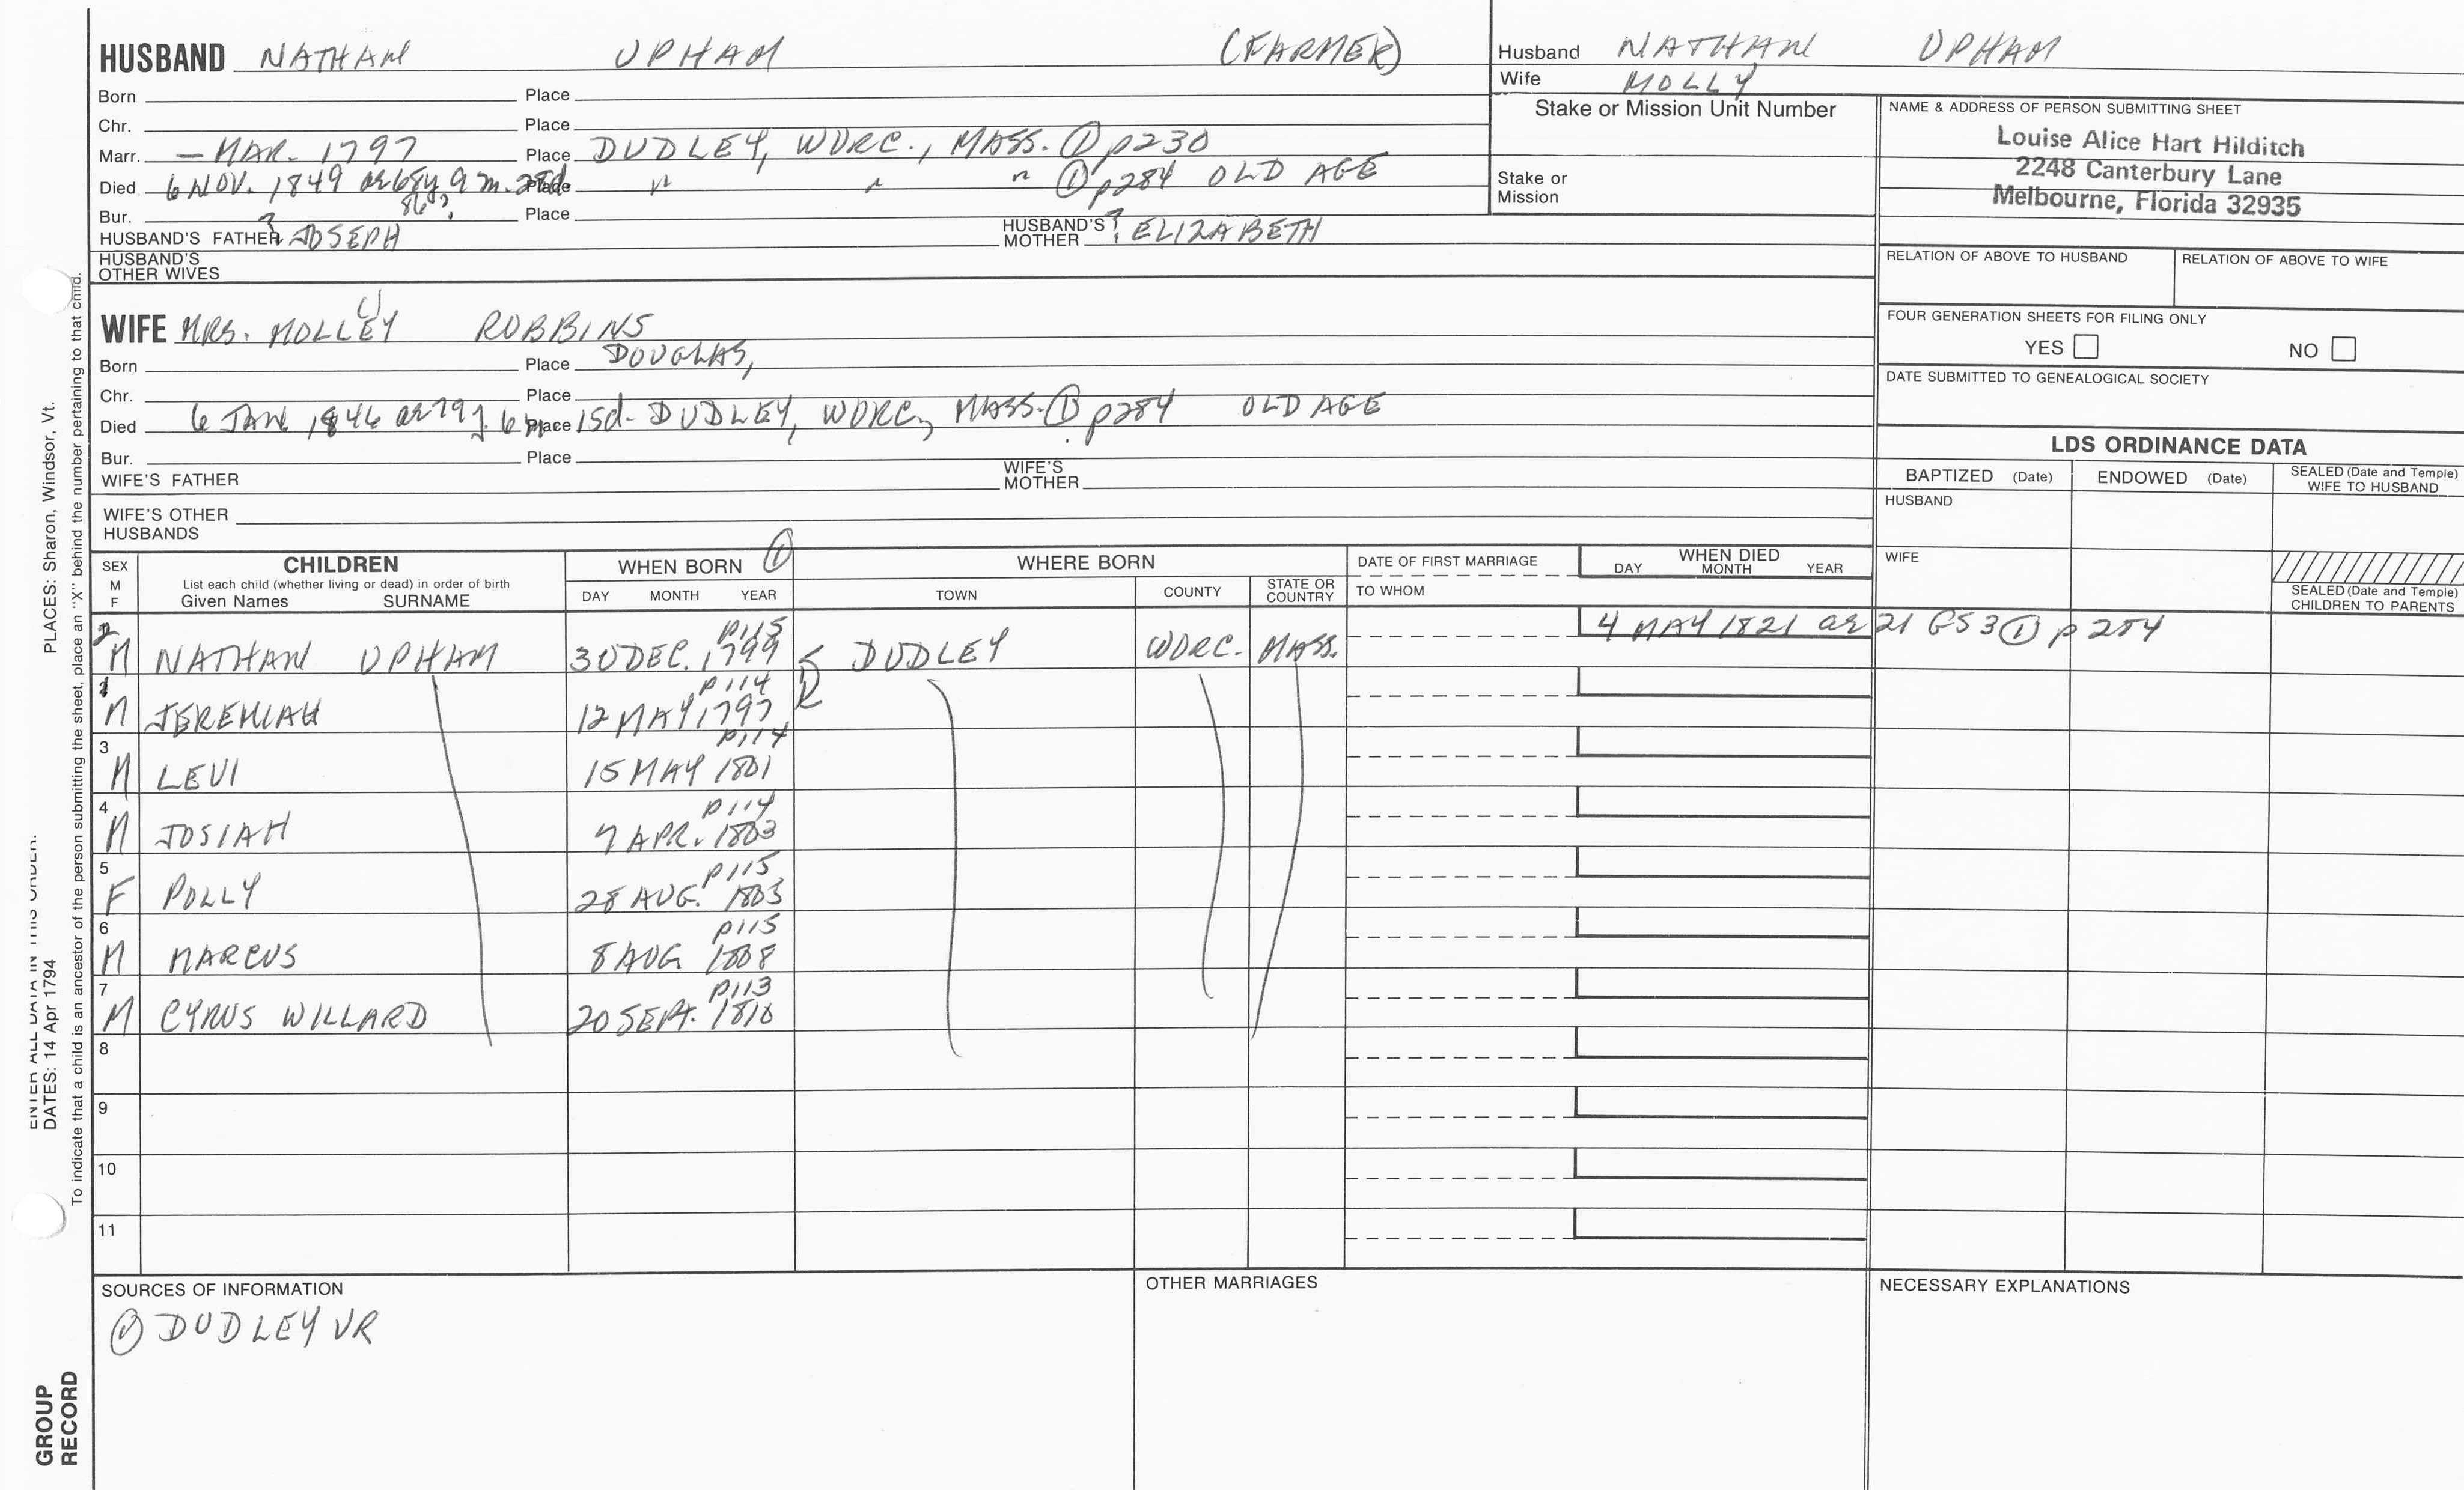 HUSBAND NATHAN UPHAM (FARMER)
Born Place
Chr. Place
Marr. — MAR. 1797 Place DUDLEY, WORC., MASS. ① p230
Died 6 NOV. 1849 ae 68y 9 m. 28d. Place " " " ① p284 OLD AGE
86?
Bur. Place
HUSBAND'S FATHER ? JOSEPH HUSBAND'S MOTHER ? ELIZABETH
HUSBAND'S OTHER WIVES
Husband NATHAN UPHAM
Wife MOLLY
Stake or Mission Unit Number
Stake or Mission
NAME & ADDRESS OF PERSON SUBMITTING SHEET
Louise Alice Hart Hilditch
2248 Canterbury Lane
Melbourne, Florida 32935
RELATION OF ABOVE TO HUSBAND RELATION OF ABOVE TO WIFE
FOUR GENERATION SHEETS FOR FILING ONLY
YES NO
DATE SUBMITTED TO GENEALOGICAL SOCIETY
WIFE MRS. MOLLEY ROBBINS
Born Place DOUGLAS,
Chr. Place
Died 6 JAN. 1846 ae 79y. 6m Place 15d. DUDLEY, WORC., MASS. ① p284 OLD AGE
Bur. Place
WIFE'S FATHER WIFE'S MOTHER
WIFE'S OTHER HUSBANDS
LDS ORDINANCE DATA
BAPTIZED (Date) ENDOWED (Date) SEALED (Date and Temple) WIFE TO HUSBAND
HUSBAND
WIFE
SEALED (Date and Temple) CHILDREN TO PARENTS
SEX M F CHILDREN WHEN BORN ① WHERE BORN DATE OF FIRST MARRIAGE WHEN DIED
List each child (whether living or dead) in order of birth
Given Names SURNAME DAY MONTH YEAR TOWN COUNTY STATE OR COUNTRY TO WHOM DAY MONTH YEAR
p115
2 M NATHAN UPHAM 30 DEC. 1799 DUDLEY WORC. MASS. 4 MAY 1821 ae 21 GS3 ① p 284
p114
1 M JEREMIAH 12 MAY 1797
p114
3 M LEVI 15 MAY 1801
p114
4 M JOSIAH 7 APR. 1803
p115
5 F POLLY 28 AUG. 1803
p115
6 M MARCUS 8 AUG 1808
p113
7 M CYRUS WILLARD 20 SEPT. 1810
8
9
10
11
SOURCES OF INFORMATION OTHER MARRIAGES NECESSARY EXPLANATIONS
① DUDLEY VR
DATES: 14 Apr 1794
PLACES: Sharon, Windsor, Vt.
To indicate that a child is an ancestor of the person submitting the sheet, place an "X" behind the number pertaining to that child.
GROUP
RECORD